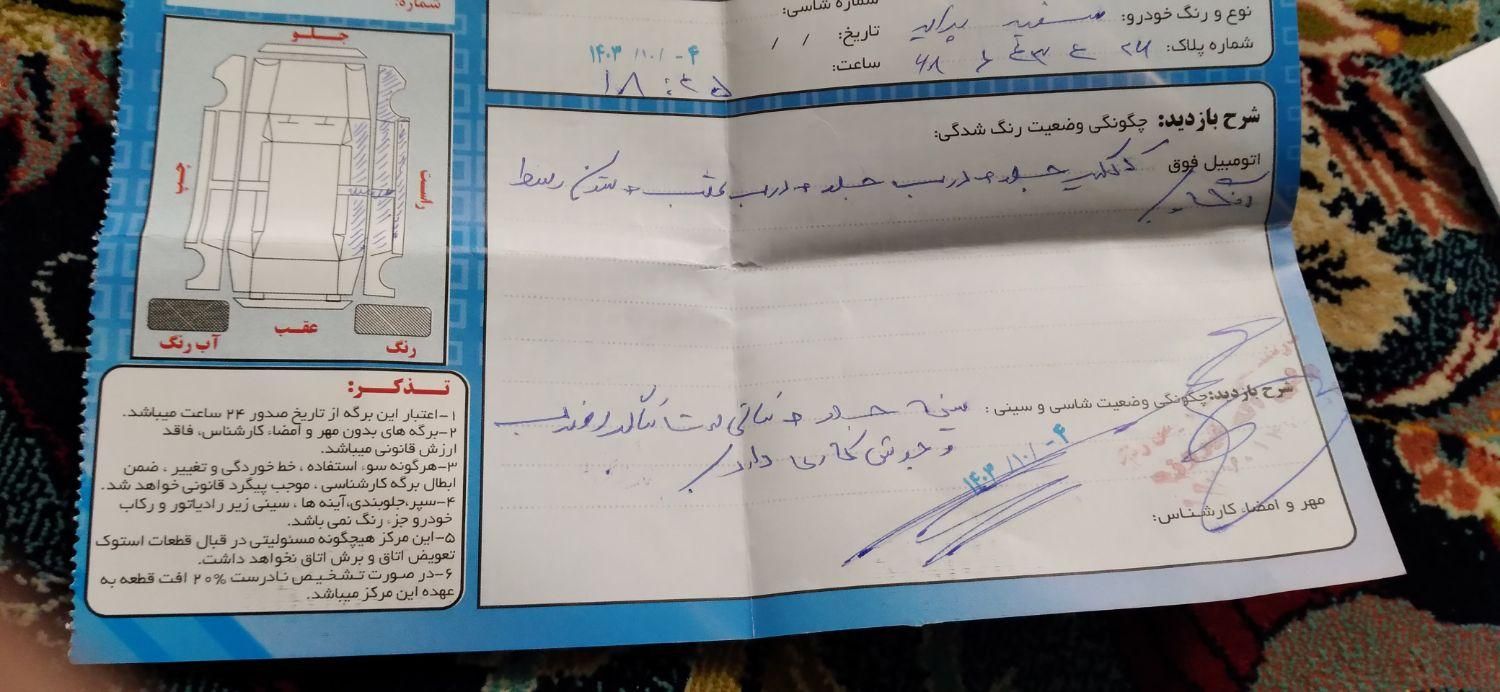 شماره:
نوع و رنگ خودرو: سفید پراید
شماره پلاک:
شماره شاسی:
تاریخ: / /
۱۴۰۳/۱۰/۰۴
ساعت: ۱۸:۴۵
جلو
چپ
راست
عقب
آب رنگ
رنگ
شرح بازدید: چگونگی وضعیت رنگ شدگی:
اتومبیل فوق گلگیر جلو و درب جلو و درب عقب و ستون وسط
شرح بازدید: چگونگی وضعیت شاسی و سینی: سینی جلو و
و جوش کاری دارد
۱۴۰۳/۱۰/۰۴
مهر و امضاء کارشناس:
تذکر:
۱-اعتبار این برگه از تاریخ صدور ۲۴ ساعت میباشد.
۲-برگه های بدون مهر و امضاء کارشناس، فاقد
ارزش قانونی میباشد.
۳-هرگونه سوء استفاده ، خط خوردگی و تغییر ، ضمن
ابطال برگه کارشناسی ، موجب پیگرد قانونی خواهد شد.
۴-سپر،جلوبندی،آینه ها ، سینی زیر رادیاتور و رکاب
خودرو جزء رنگ نمی باشد.
۵-این مرکز هیچگونه مسئولیتی در قبال قطعات استوک
تعویض اتاق و برش اتاق نخواهد داشت.
۶-در صورت تشخیص نادرست ۲۰% افت قطعه به
عهده این مرکز میباشد.